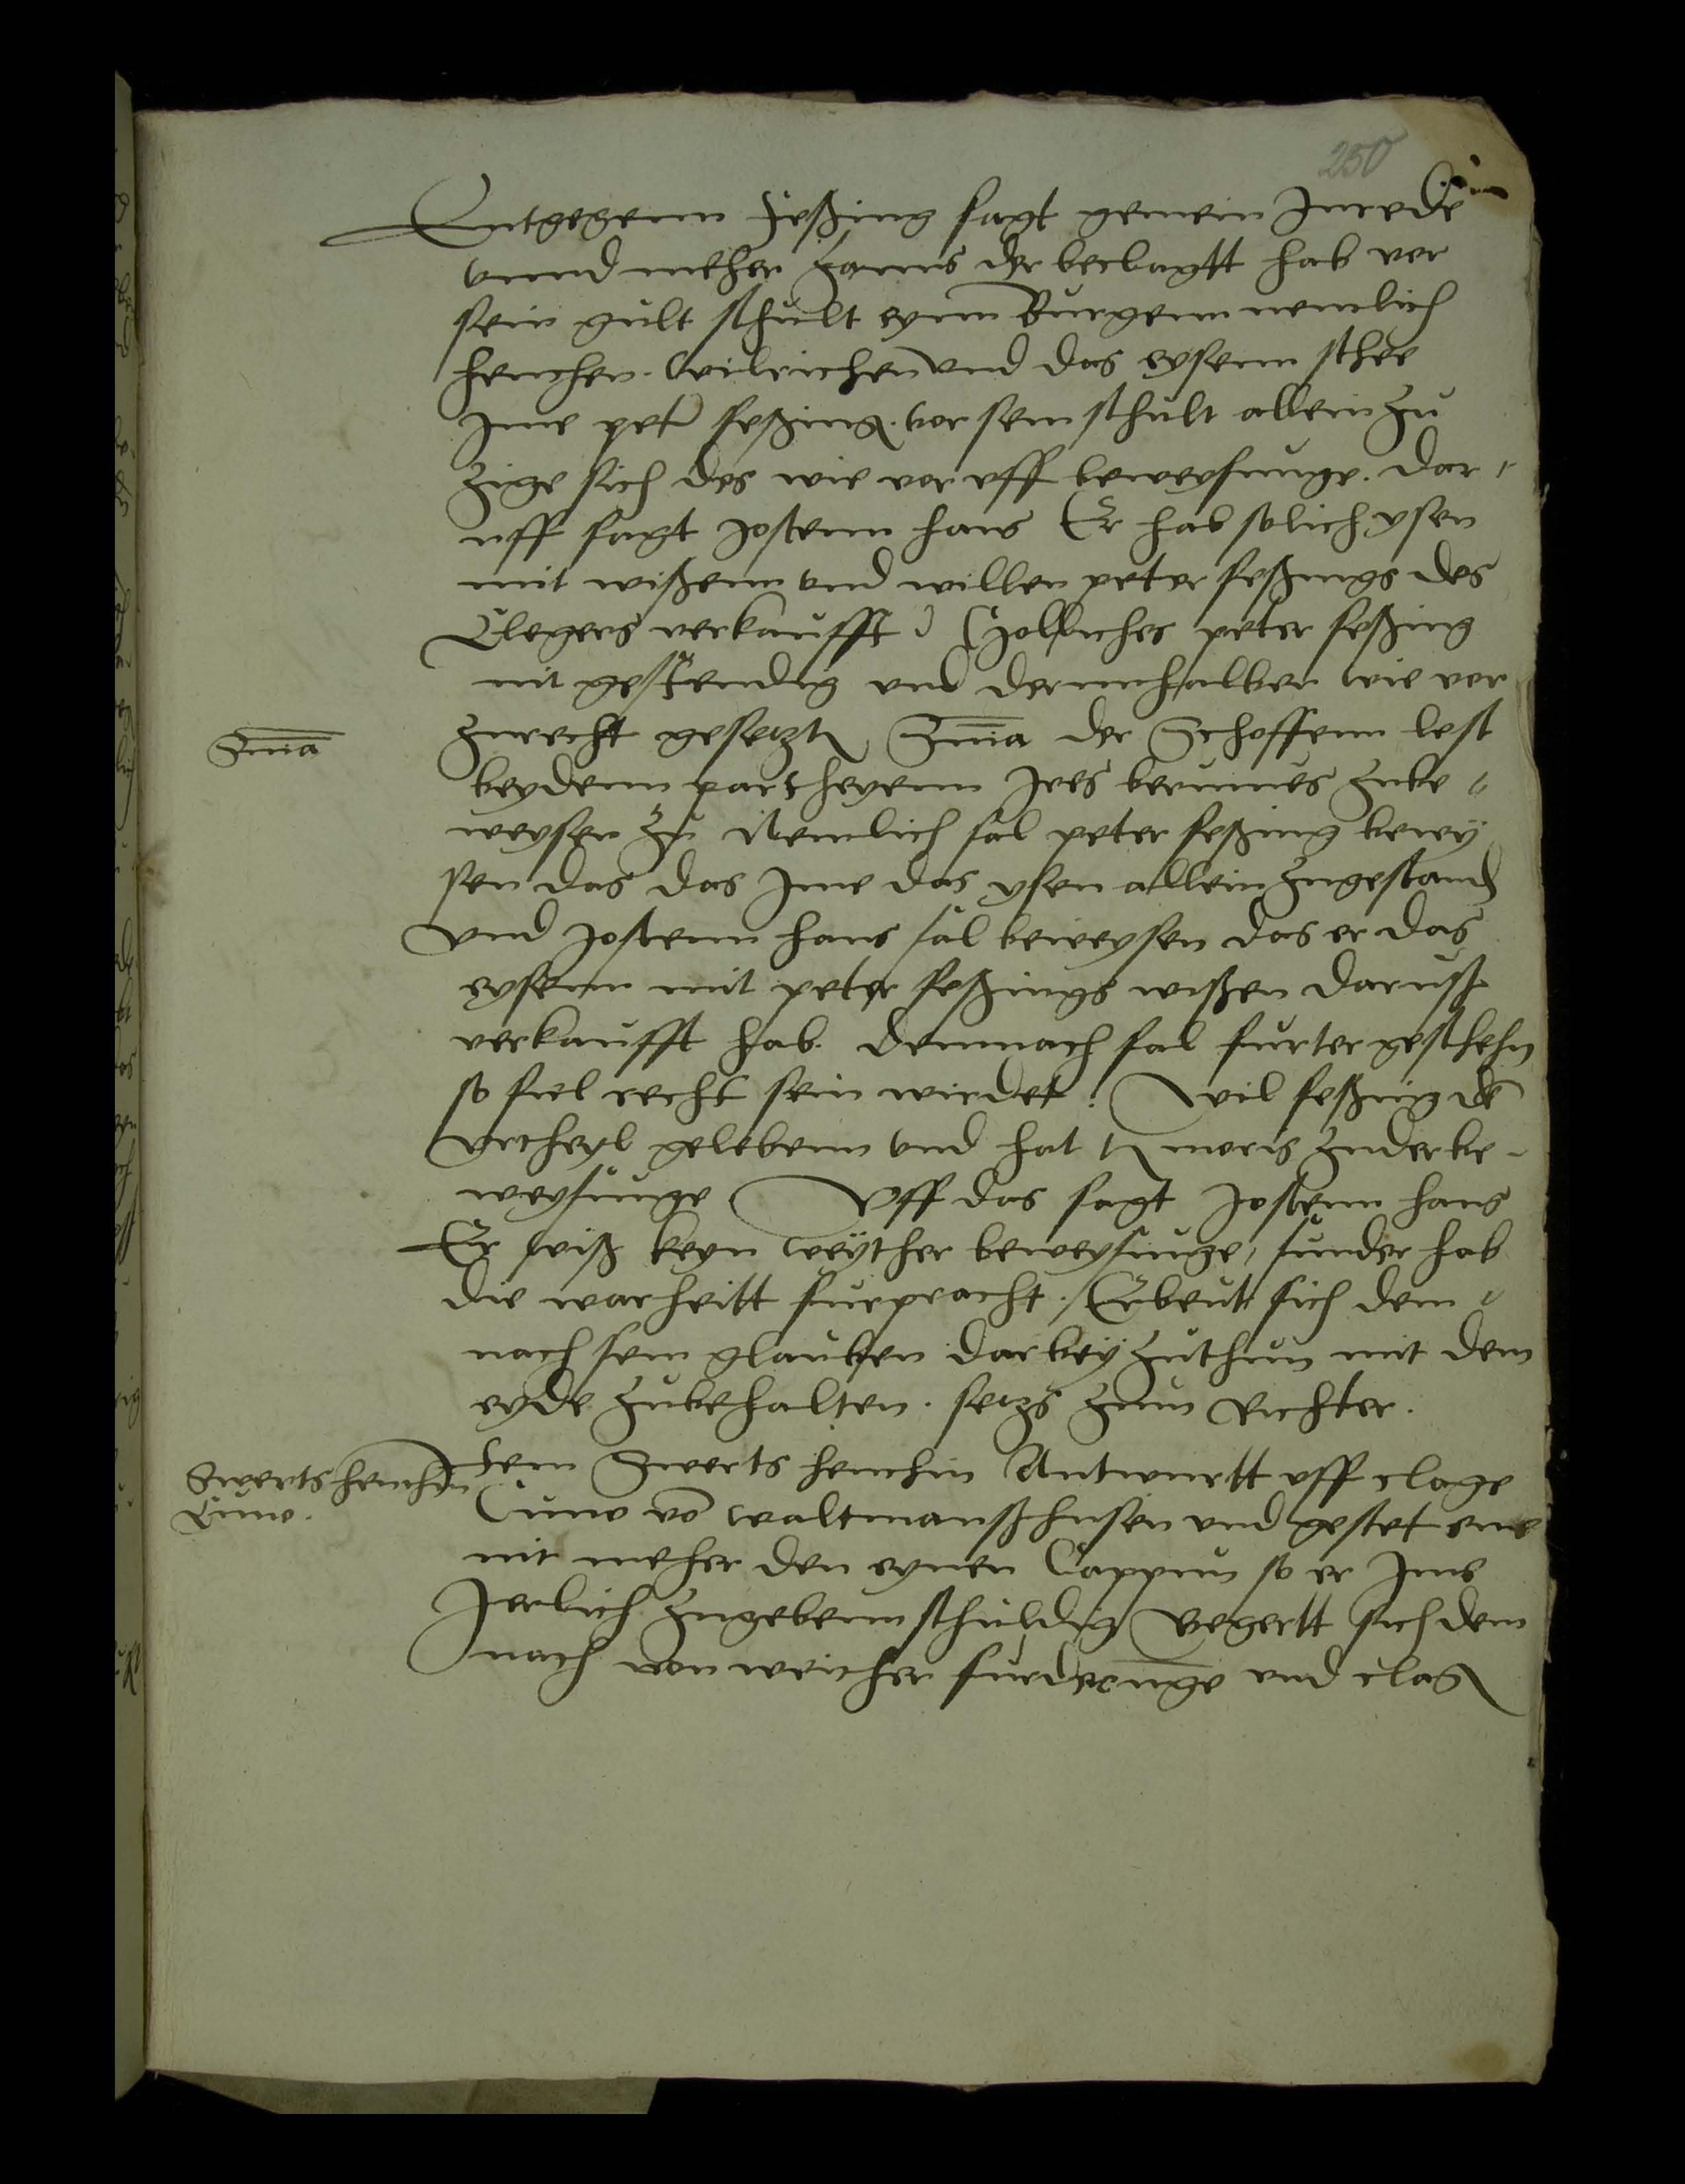 250
Entgegenn Feßing sagt gemein Inrede
vnnd meher Hanns der beclagtt hab vor
sein gult schult eynn Burgenn nemlich
Henchen vnd das eysenn sthee
Ime peter feßing vor sein schult allein zu
Zige sich des wie vor vff beweysunge. Dar,
uff sagt Jostenn hans Er hab solich ysen
mit wißenn vnd willen peter feßings des
Clegers verkaufft Solliches peter feßing
nit gestendig vnd dernnhalber wie vor
Snia
zurecht gesetzt Snia der Schoffenn lest
beydenn partheyenn Jres berumes zube,,
weysen zu Nemlich sal peter feßing bewey
sen das das Ime das ysen allein zugestand
vnd Jostenn hans sal beweysen das er das
eysenn mit peter feßings wißen daruß
verkaufft hab. Demnach sal furter geschehn
so fiel recht sein wirdet. Wil feßing de
vrtheyl gelebenn vnd hat moris zuder be-
weysunge Vff das sagt Jostenn hans
Er wiß keyn weyther beweysunge, sunder hab
die warheitt furpracht. Erbeut sich dem,,
nach sein glauben darbey zuthun mit dem
eyde zubehalten. setzs zum Richter.
Swerts henchin
Cuno.
Item Swerts henchin Antwurtt vff clage
Cuno vo Waltmanßhusen vnd gestet eme
nit meher den eynen Cappun so er Ime
Jerlich zugebenn schuldig Begertt sich dem
nach von weither furderunge vnd clag